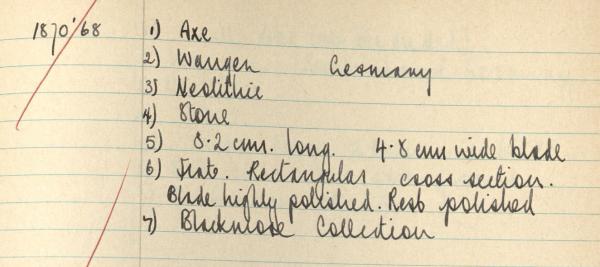 1870'68 1) Axe
2) Wangen Germany
3) Neolithic
4) Stone
5) 8.2 cms. long. 4.8 cms wide blade
6) Rectangular cross section.
Blade highly polished. Rest polished
7) Blackmore Collection